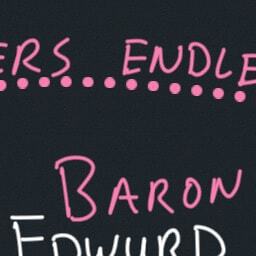 ERS ENDLE
BARON
EDWURD